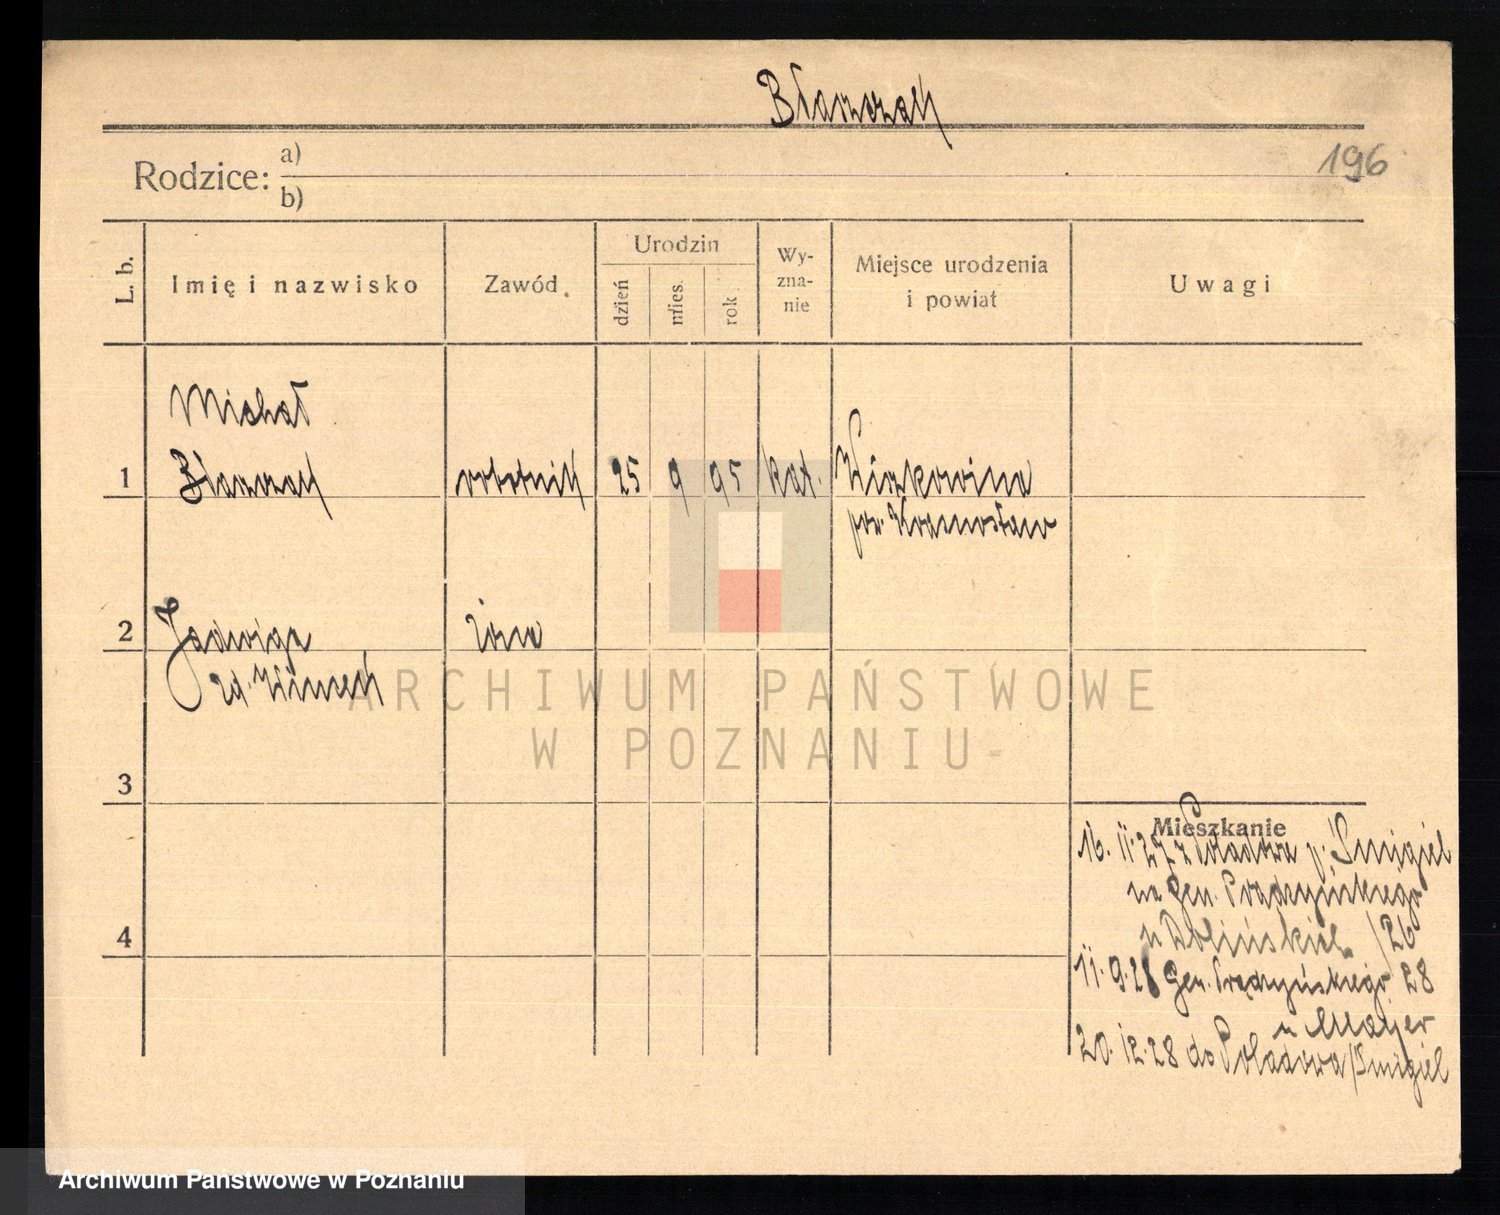 Błaszczak
196
Rodzice: a)
b)
L. b.
Imię i nazwisko
Zawód
Urodzin
dzień
mies.
rok
Wy-
zna-
nie
Miejsce urodzenia
i powiat
Uwagi
Michał
1 Błaszczak robotnik 25 9 95 kat.
pow. Krasnostaw
2 Jadwiga żona
3
4
Mieszkanie
16. 11. 27 z Poladowa p. Śmigiel
na Gen. Prądzyńskiego
u Dolińskiel /26
11. 9. 28 Gen. Prądzyńskiego 28
u Majer
20. 12. 28 do Poladowa/Śmigiel
ARCHIWUM PAŃSTWOWE
W POZNANIU
Archiwum Państwowe w Poznaniu